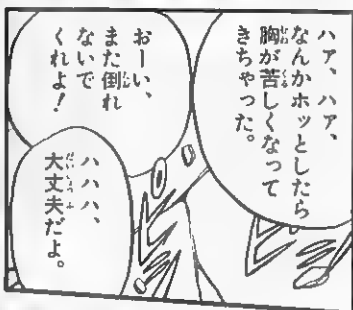 ハァ、ハァ、
なんかホッとしたら
胸が苦しくなって
きちゃった。
おーい、
また倒れ
ないで
くれよ！
ハハハ、
大丈夫だよ。